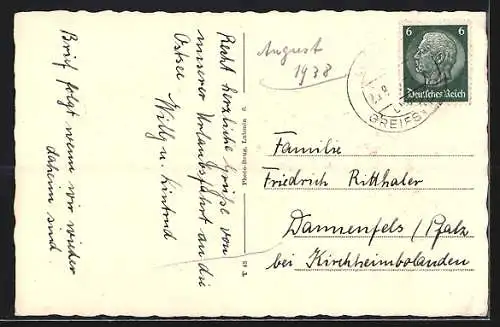 Recht herzliche Grüße von
unserer Urlaubsfahrt an die
Ostsee Willy u.
Brief folgt wenn wir wieder
daheim sind.
August
1938
T. 63 Photo-Brög,
6 6
Deutsches Reich
GREIFS
Familie
Friedrich Ritthaler
Dannenfels / Pfalz
bei Kirchheimbolanden